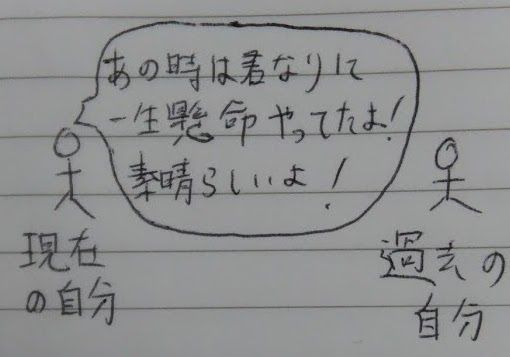 あの時は君なりに
一生懸命やってたよ!
素晴らしいよ!
現在
の自分
過去の
自分